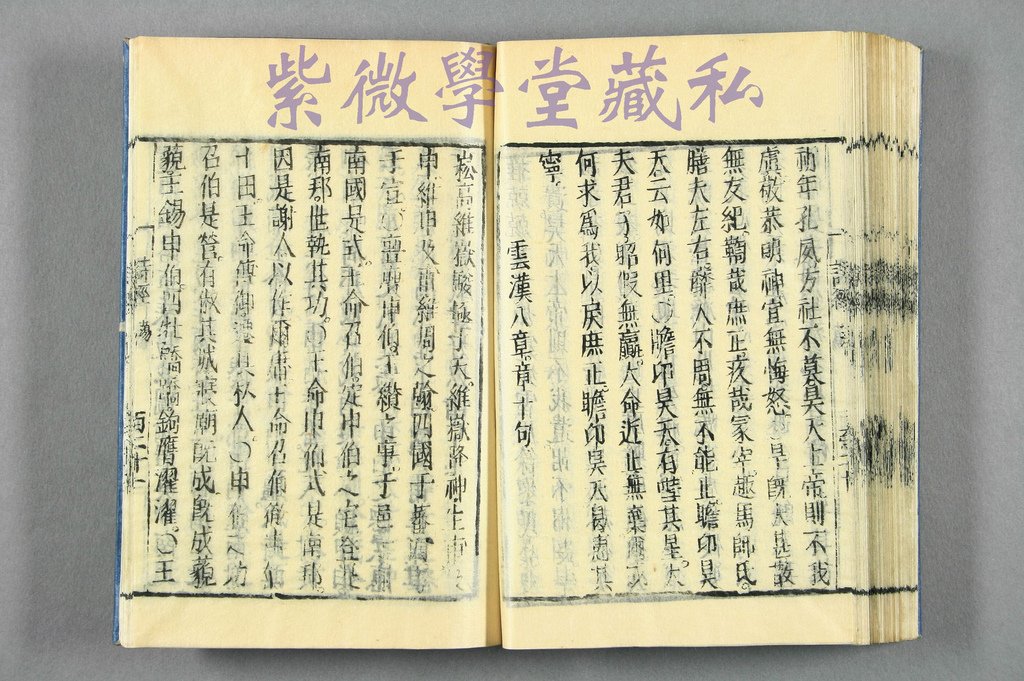 紫微學堂藏私
祈年孔夙方社不暮昊天上帝則不我
虞敬恭明神宜無悔怒○旱旣大甚散
無友紀鞫哉庶正疚哉冢宰趣馬師氏
膳夫左右靡人不周無不能止瞻卬昊
天云如何里○瞻卬昊天有嘒其星大
夫君子昭假無贏大命近止無棄爾成
何求爲我以戾庶正瞻卬昊天曷惠其
寧
雲漢八章章十句
崧高維嶽駿極于天維嶽降神生甫及
申維申及甫維周之翰四國于蕃四方
于宣○亹亹申伯王纘之事于邑于謝
南國是式王命召伯定申伯之宅登是
南邦世執其功○王命申伯式是南邦
因是謝人以作爾庸王命召伯徹申伯
土田王命傅御遷其私人○申伯之功
召伯是營有俶其城寢廟旣成旣成藐
藐王錫申伯四牡蹻蹻鉤膺濯濯○王
詩經 蕩